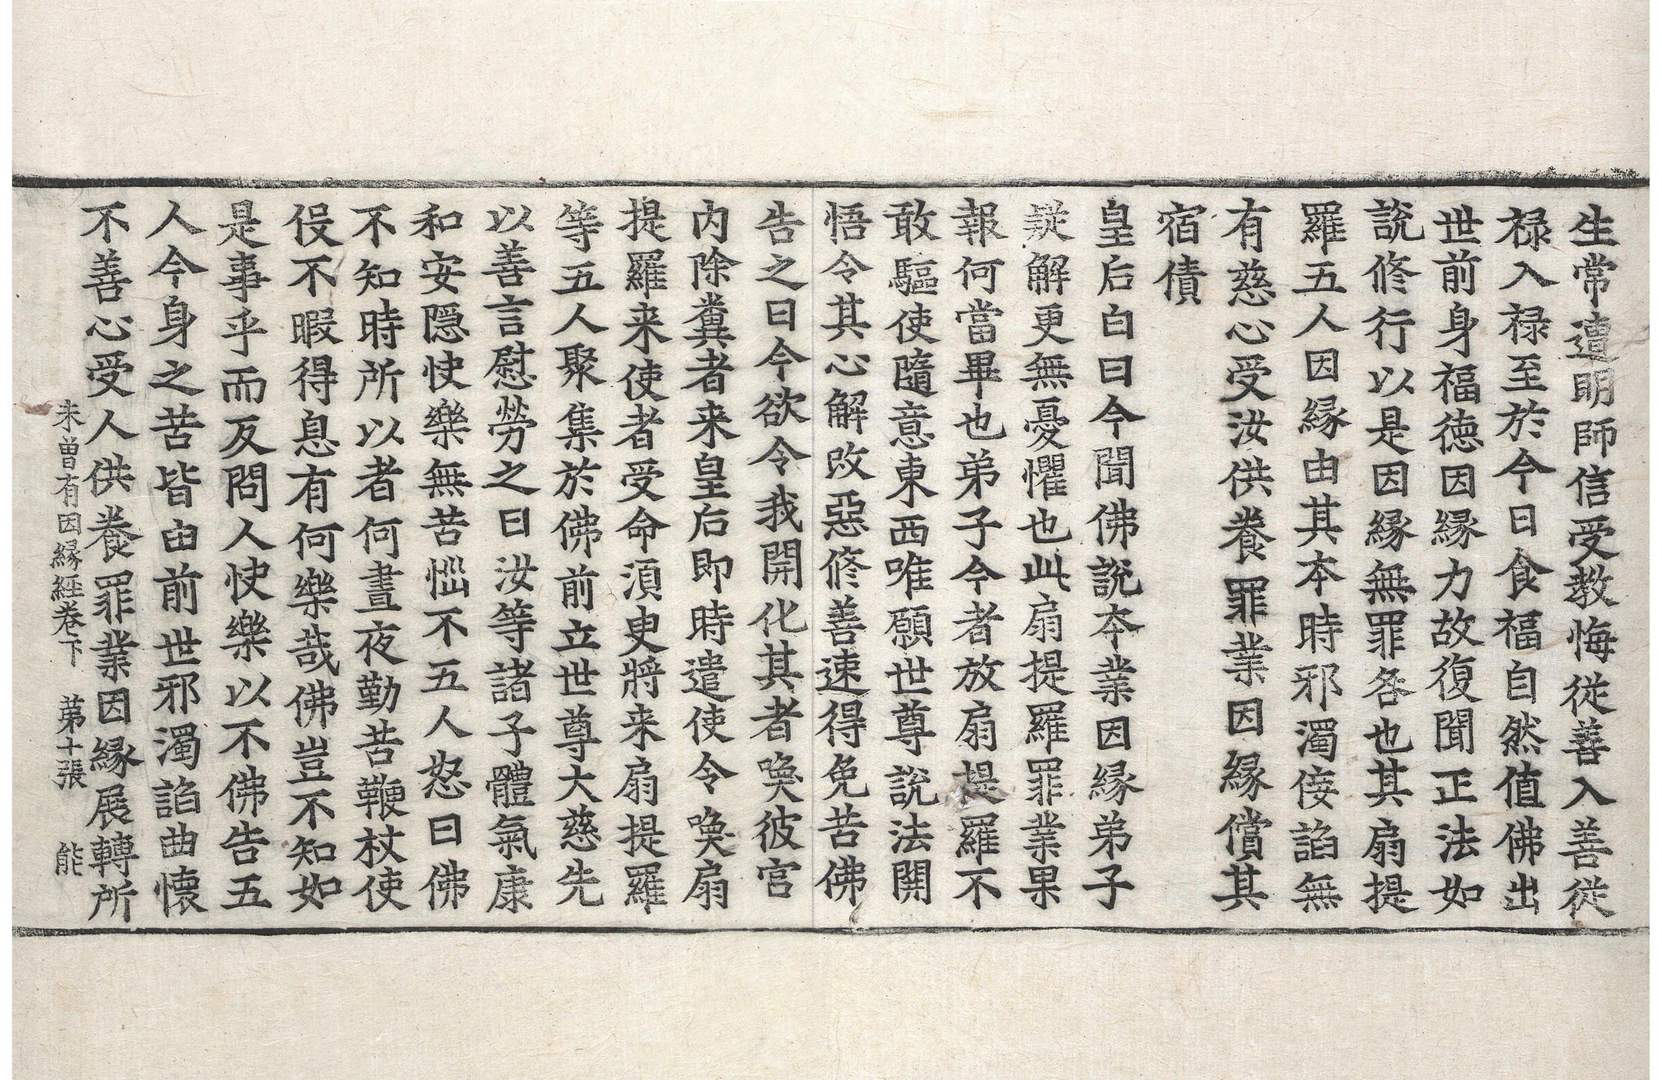 生常遭明師信受教悔従善入善従
禄入禄至於今日食福自然值佛出
世前身福德因縁力故復聞正法如
說修行以是因縁無罪咎也其扇提
羅五人因縁由其本時邪濁侫諂無
有慈心受汝供養罪業因縁償其
宿債
皇后白曰今聞佛說本業因縁弟子
疑解更無憂懼也此扇提羅罪業果
報何當畢也弟子今者放扇提羅不
敢驅使隨意東西唯願世尊說法開
悟令其心解改惡修善速得免苦佛
告之曰今欲令我開化其者喚彼宮
内除糞者来皇后即時遣使令喚扇
提羅来使者受命湏臾將来扇提羅
等五人聚集於佛前立世尊大慈先
以善言慰勞之曰汝等諸子體氣康
和安隠快樂無苦惱不五人怒曰佛
不知時所以者何晝夜勤苦鞭杖使
伇不暇得息有何樂哉佛豈不知如
是事乎而反問人快樂以不佛告五
人今身之苦皆由前世邪濁諂曲懷
不善心受人供養罪業因縁展轉所
未曾有因縁經卷下 第十張 能